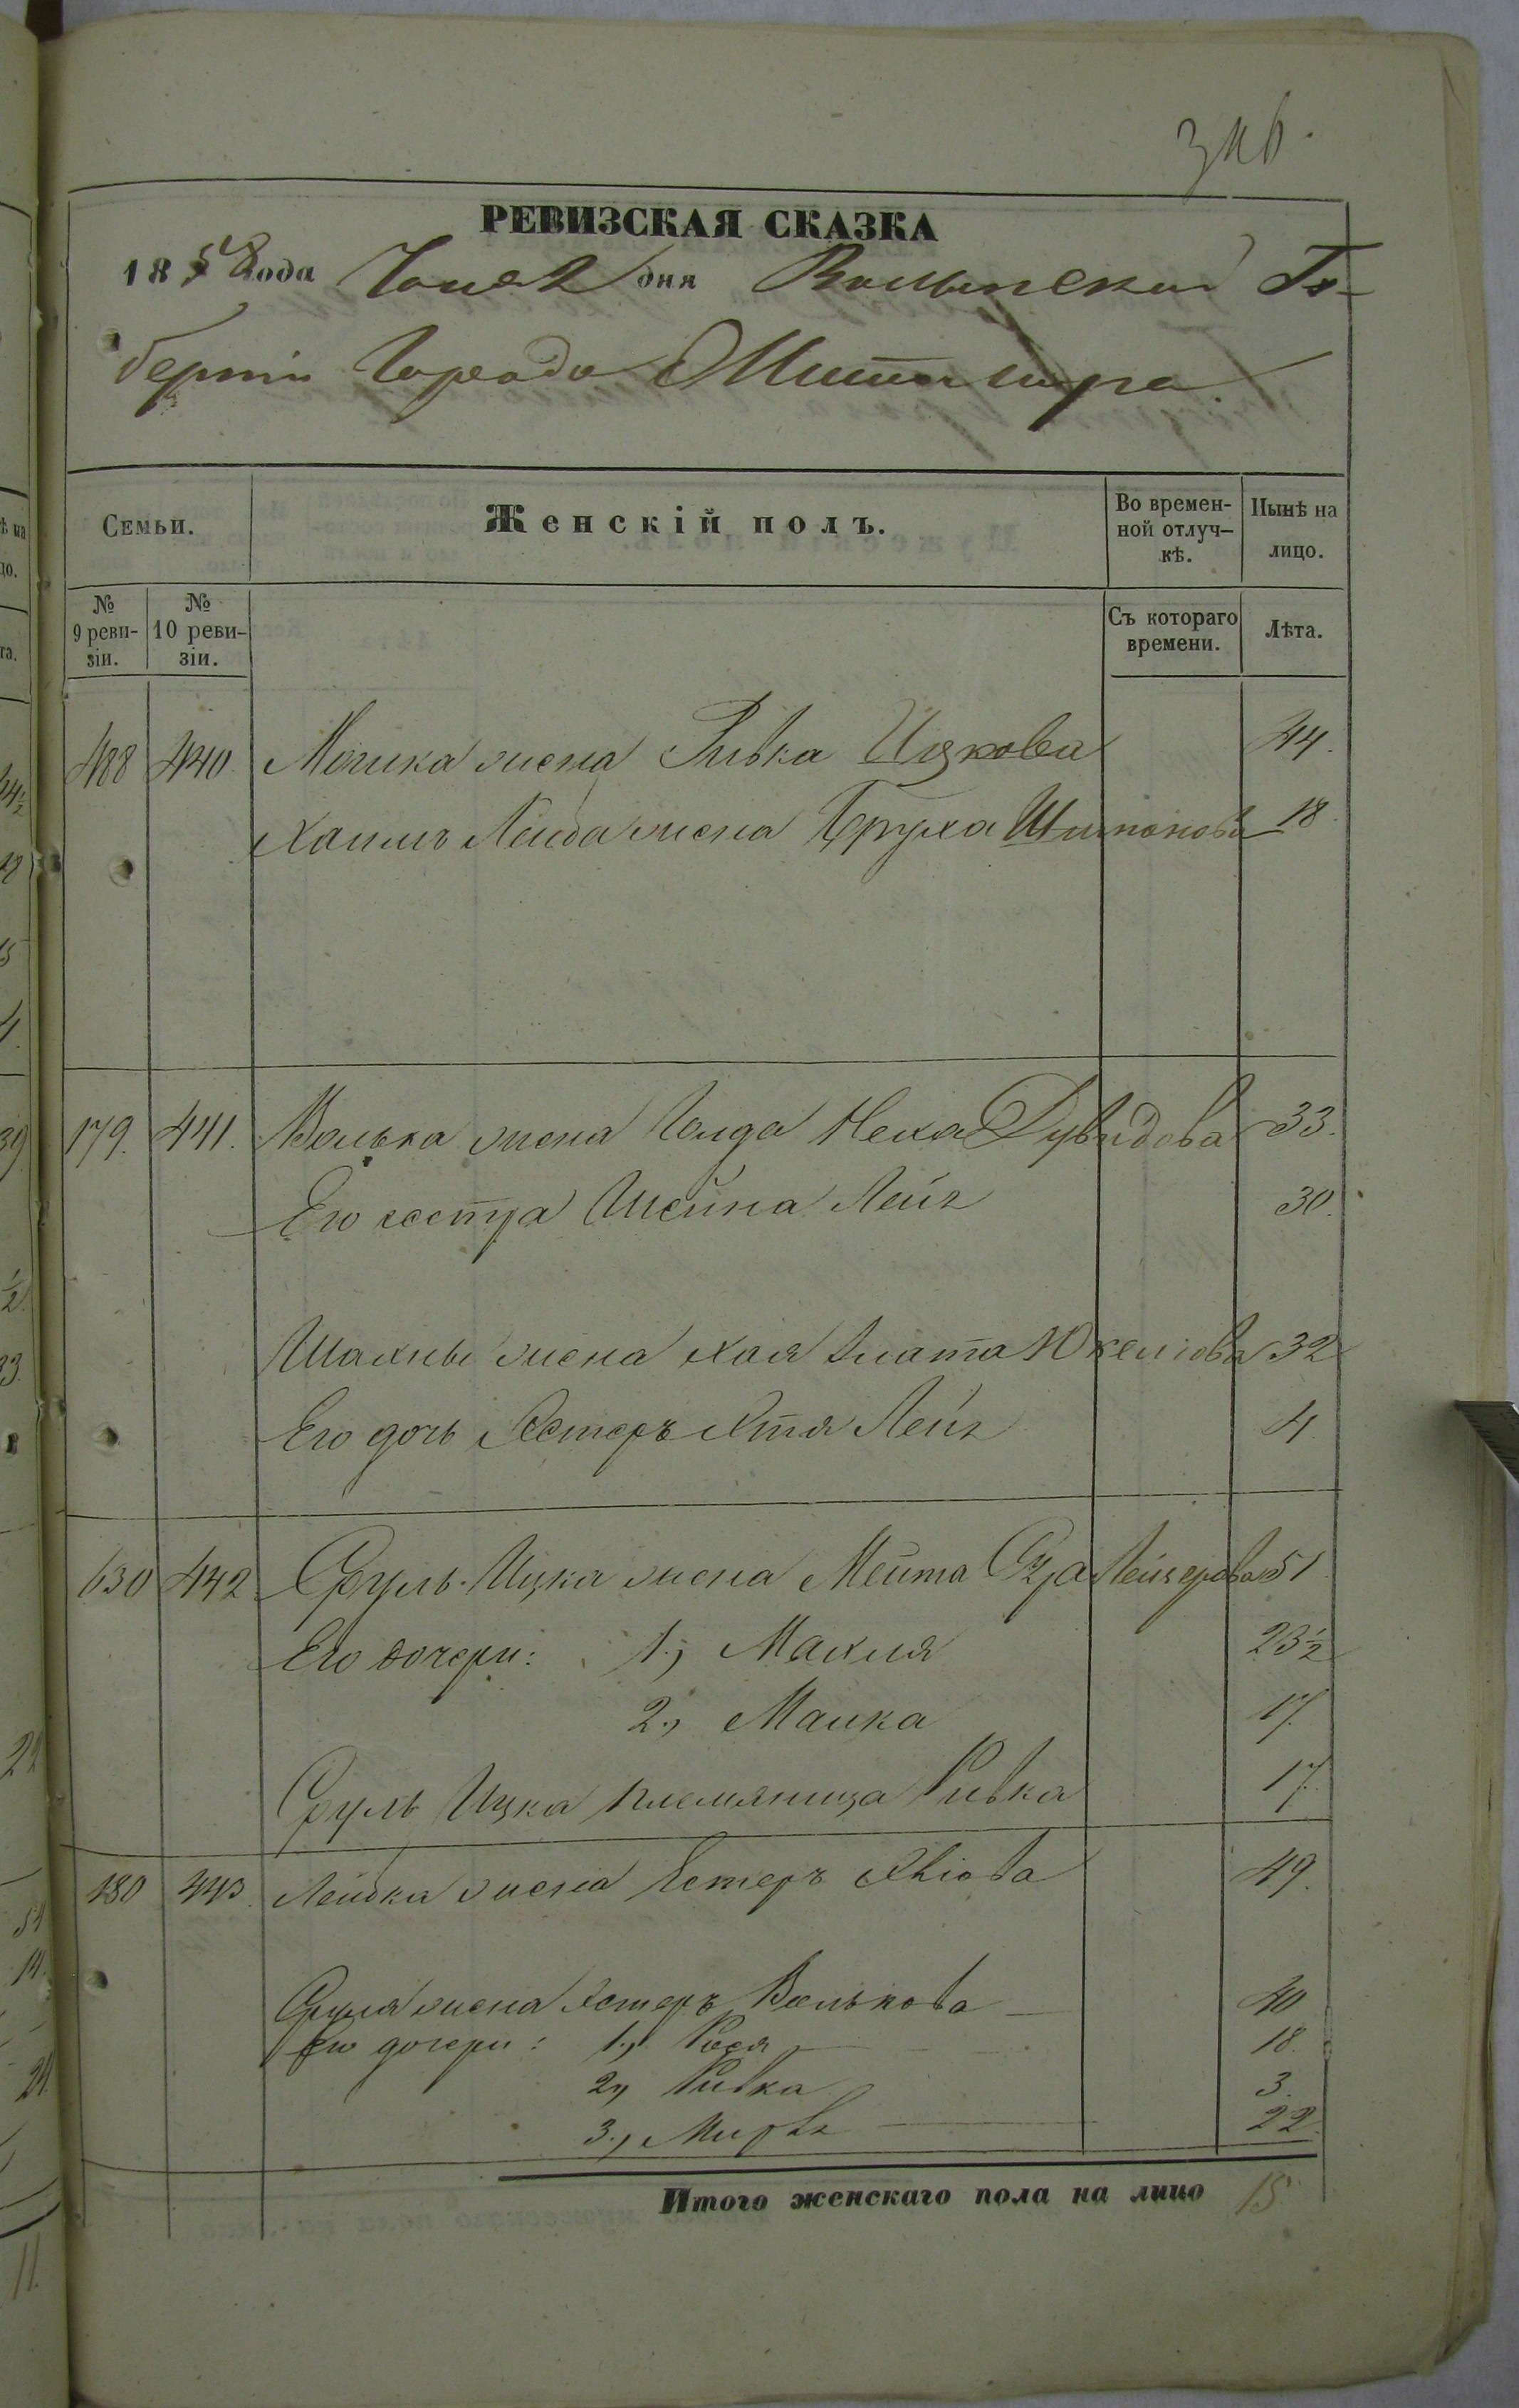 РЕВИЗСКАЯ СКАЗКА
1858 года дня Волынской Гу-
берніи Города Житомира
Семьи. Женскій полъ. Во времен-ной отлуч-кѣ. Нынѣ на лицо.
№ 9 реви-зіи. № 10 реви-зіи. Съ котораго времени. Лѣта.
488 440 Мошка жена Ривка Ицкова 44.
Хаимъ Лейба жена Бруха Шимонова 18.
179. 441. Волька жена Голда Неха Дувидова 33.
Его сестра Шейна Лея 30.
Шахны жена Хая Злата Юкелiова 32
Его дочь Эстеръ Лея 4.
630 442 Сруль-Ицка жена Мейта Сура Лейзерова 51
Его дочери: 1., Махля 23 1/2
2., Малка 17.
Сруль Ицка племяница Ривка 17.
180 443. Лейбка жена Естеръ 49.
Сруля жена Эстеръ Волькова 40
Его дочери: 1., Рося 18.
2., Ривка 3.
3., 22.
Итого женскаго пола на лицо 15